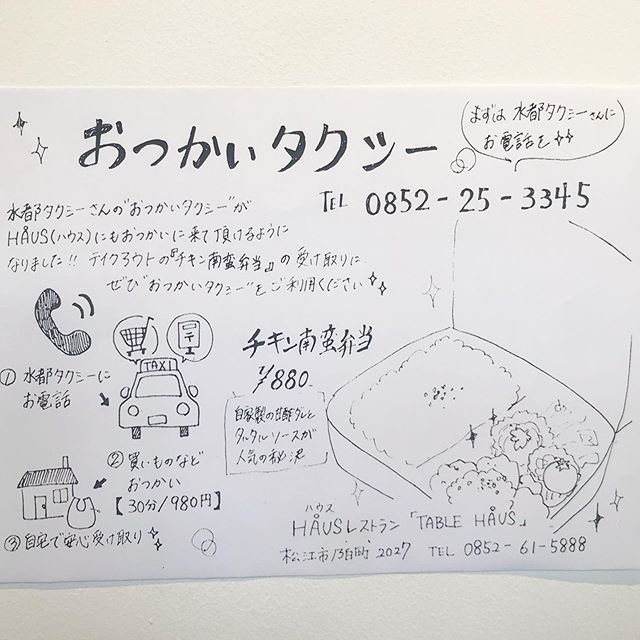 おつかいタクシー
まずは 水都タクシーさんに
お電話を
TEL 0852-25-3345
水都タクシーさんの"おつかいタクシー"が
HÅUS(ハウス)にもおつかいに来て頂けるように
なりました!! テイクアウトの『チキン南蛮弁当』の受け取りに
ぜひ"おつかいタクシー"をご利用ください
TAXI
① 水都タクシーに
お電話
② 買いものなど
おつかい
【30分/980円】
③ 自宅で安心受け取り
チキン南蛮弁当
¥880-
自家製の甘酢タレと
タルタルソースが
人気の秘決
ハウス
HÅUSレストラン「TABLE HÅUS」
松江市 2027 TEL 0852-61-5888